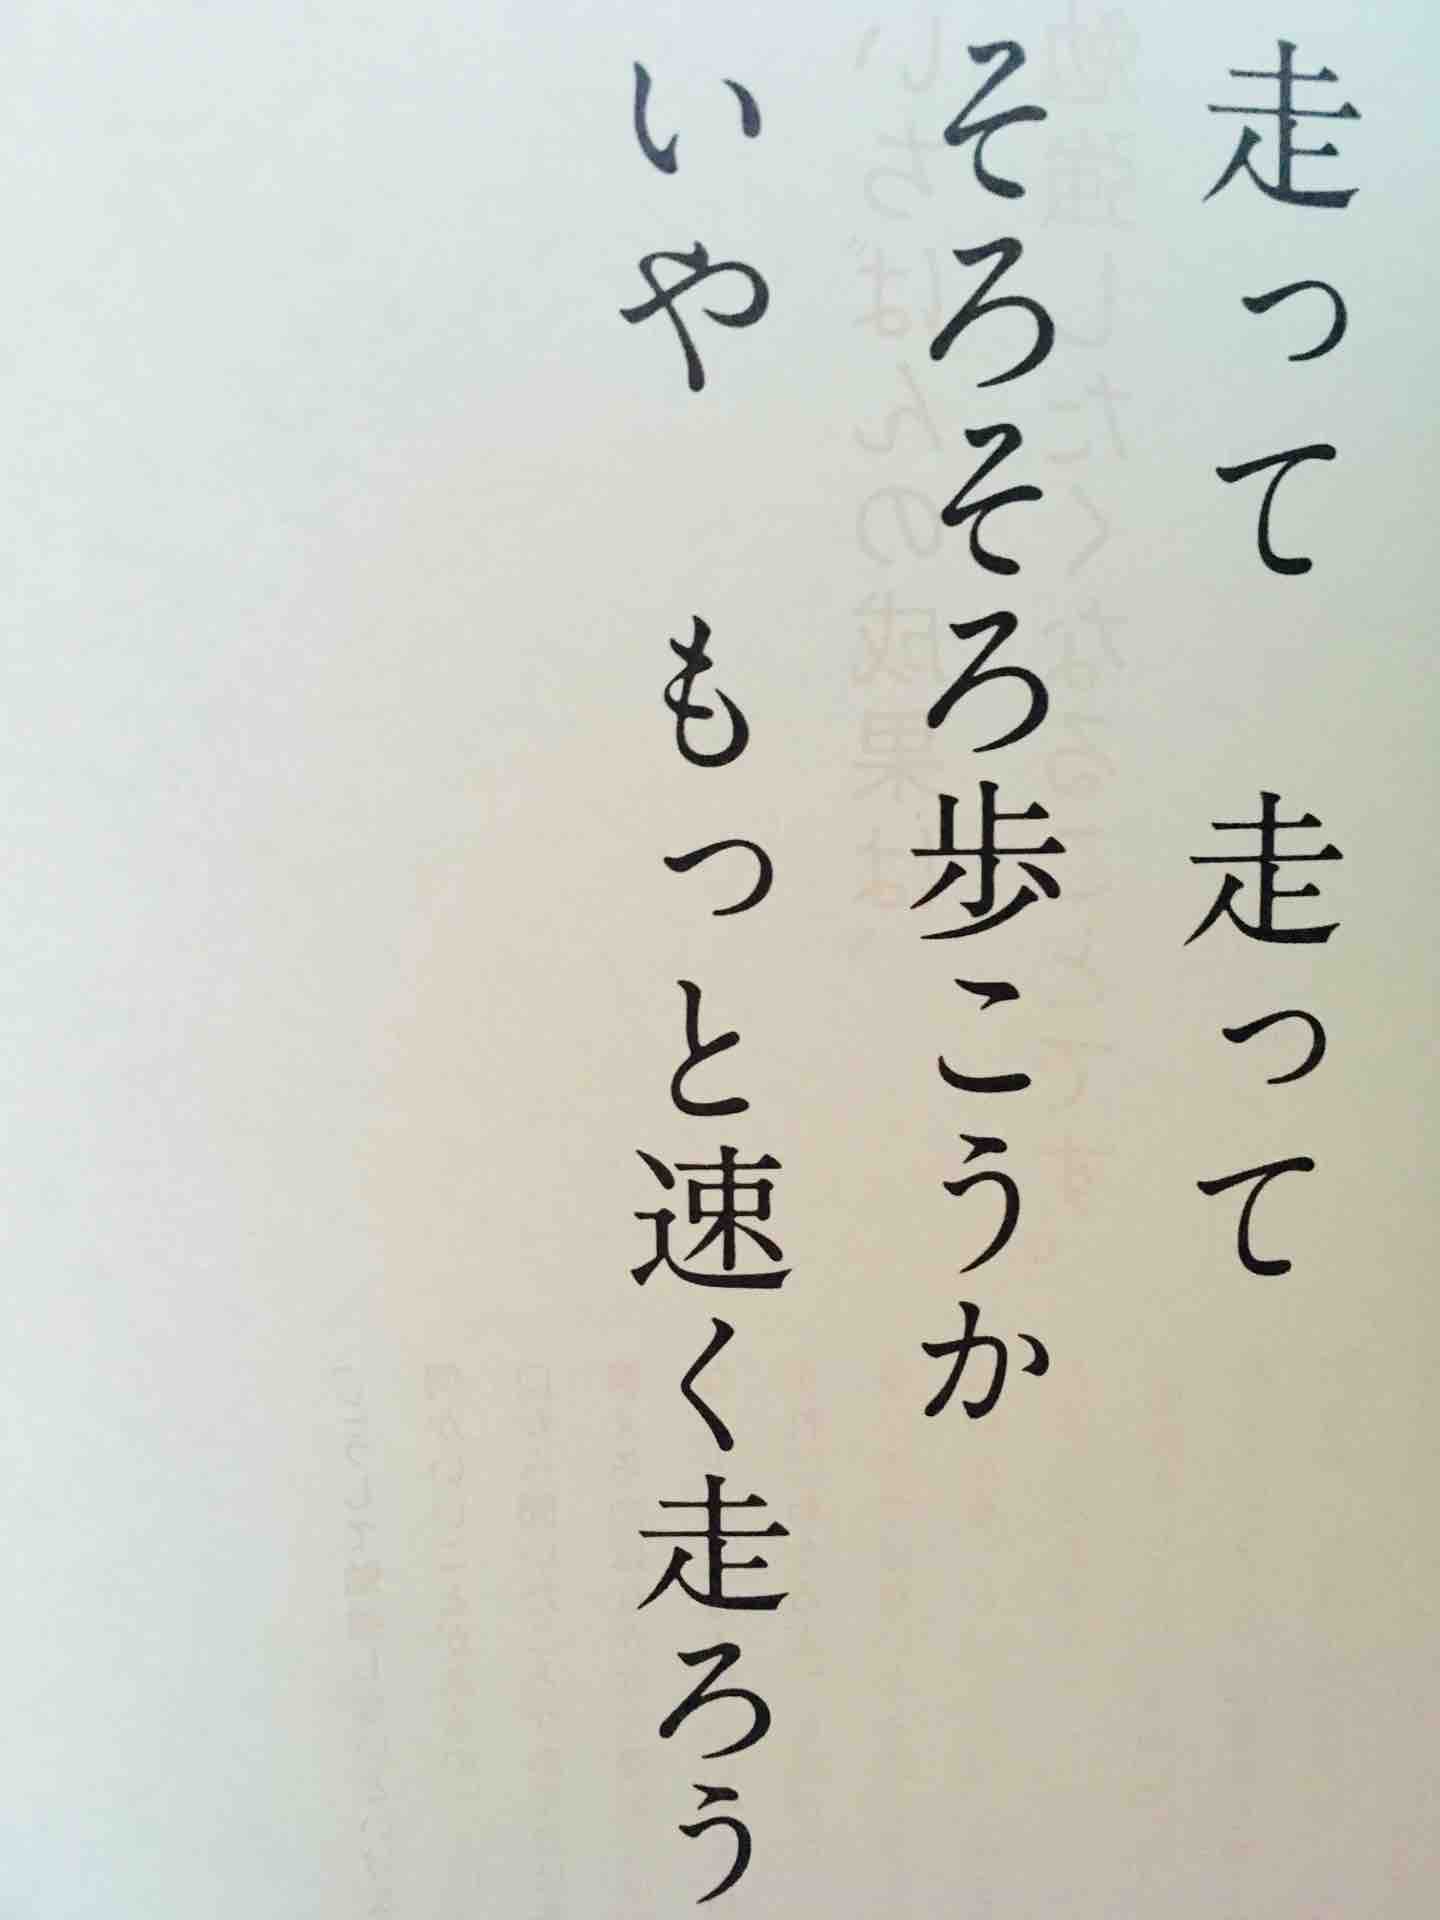 走って　走って
そろそろ歩こうか
いや　もっと速く走ろう